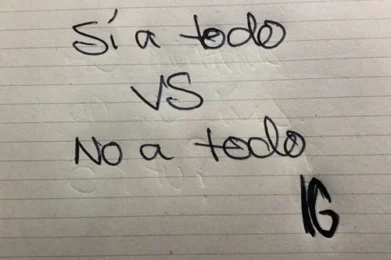 Sí a todo
VS
No a todo
IG